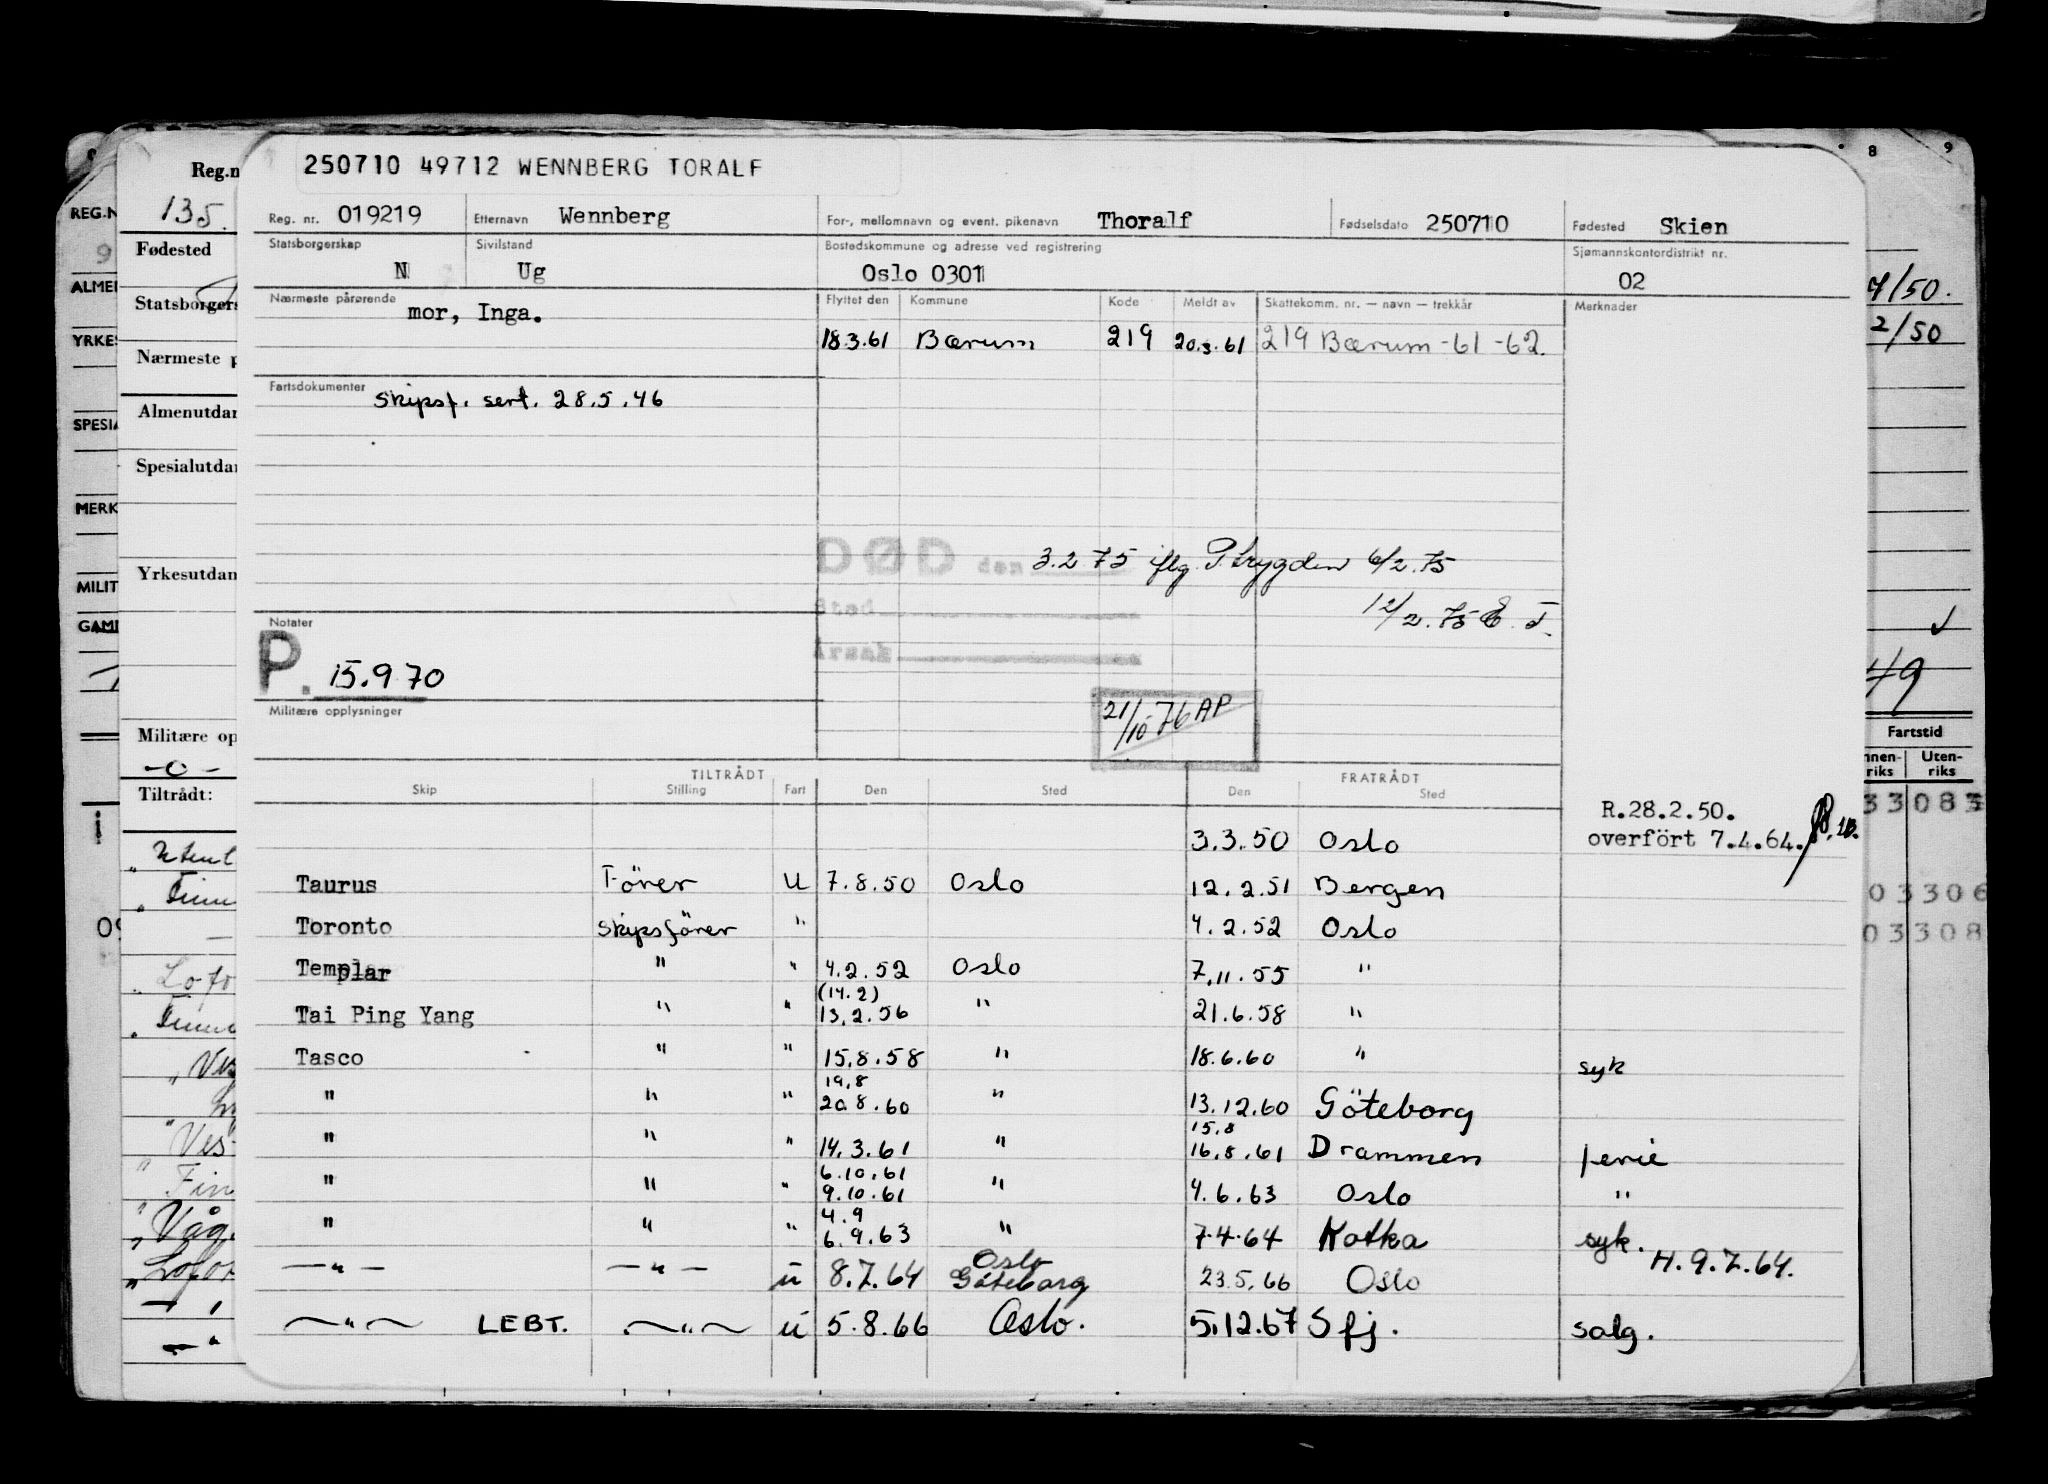 250710 49712 WENNBERG TORALF
Reg. nr. 019219 Etternavn Wennberg For-, mellomnavn og event. pikenavn Thoralf Fødselsdato 250710 Fødested Skien
Statsborgerskap N Sivilstand Ug Bostedskommune og adresse ved registrering Oslo 0301 Sjømannskontordistrikt nr. 02
Nærmeste pårørende mor, Inga. Flyttet den Kommune Kode Meldt av Skattekomm. nr. — navn — trekkår Merknader
18.3.61 Bærum 219 20.3.61 219 Bærum -61 -62.
Fartsdokumenter skipsf. sert. 28.5.46
DØD den 3.2.75 iflg. P.trygden 6/2.75
Sted 12/2.75 E.T.
Årsak
Notater
P. 15.9.70
Militære opplysninger
21/10 76 AP
TILTRÅDT FRATRÅDT
Skip Stilling Fart Den Sted Den Sted
R.28.2.50.
3.3.50 Oslo overfört 7.4.64.
Taurus Förer U 7.8.50 Oslo 12.2.51 Bergen
Toronto Skipsförer " 4.2.52 Oslo
Templar " " 4.2.52 Oslo 7.11.55 "
(14.2)
Tai Ping Yang " " 13.2.56 " 21.6.58 "
Tasco " " 15.8.58 " 18.6.60 " syk
19.8
" " " 20.8.60 " 13.12.60 Göteborg
15.8
" " " 14.3.61 " 16.8.61 Drammen ferie
6.10.61
" " " 9.10.61 " 4.6.63 Oslo "
4.9
" " " 6.9.63 " 7.4.64 Kotka syk. H.9.7.64.
Oslo
—"— —"— u 8.7.64 Göteborg 23.5.66 Oslo
—"— LEBT. —"— u 5.8.66 Oslo. 5.12.67 Sfj. salg.
Reg.n
135.
Fødested
Statsborgers
Nærmeste p
Almenutdan
Spesialutdan
Yrkesutdan
Militære op
-0-
Tiltrådt:
REG.N
9
ALMEN
YRKES
SPESIA
MERK
MILIT
GAML
8 9
7/50.
2/50
49
Fartstid
nnen-riks Uten-riks
33083
03306
03308